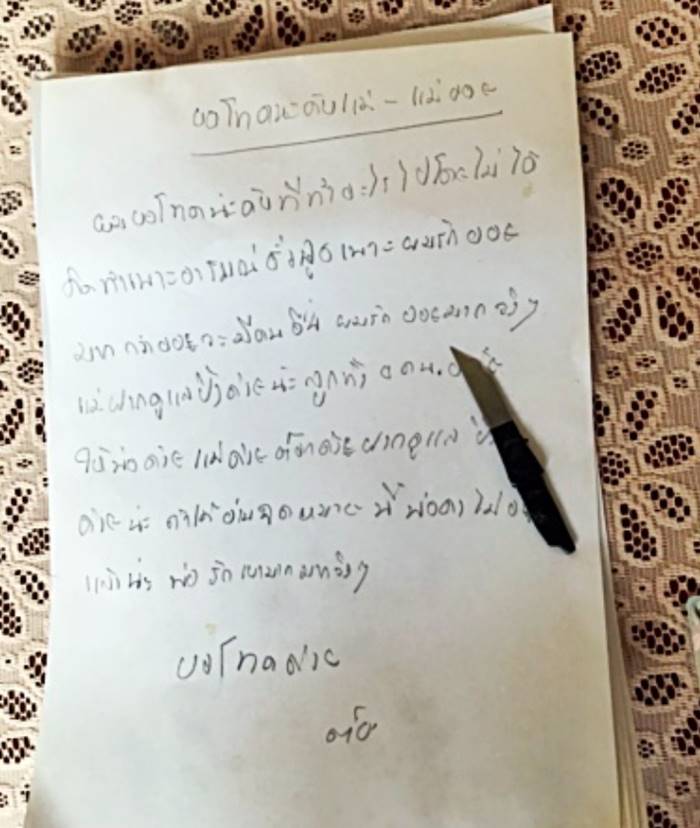 ขอโทดนะคับแม่ - แม่ออย
ผมขอโทดน่ะคับที่ทำอะไรไปโดยไม่ได้
คิดทำเพาะอารมณ์ชั่ววูบเพาะผมรักออย
มาก กลัวออยจะมีคนอื่น ผมรักออยมากจริงๆ
แม่ฝากดูแล ด้วยน่ะลูกทั้ง 2 คน.
ให้พ่อด้วย แม่ด้วย ด้วยฝากดูแล
ด้วยน่ะ ถ้าได้อ่านจดหมาย นี้ พ่อคงไม่
แล้วน่ะ พ่อรัก มาก จริงๆ
ขอโทดด้วย